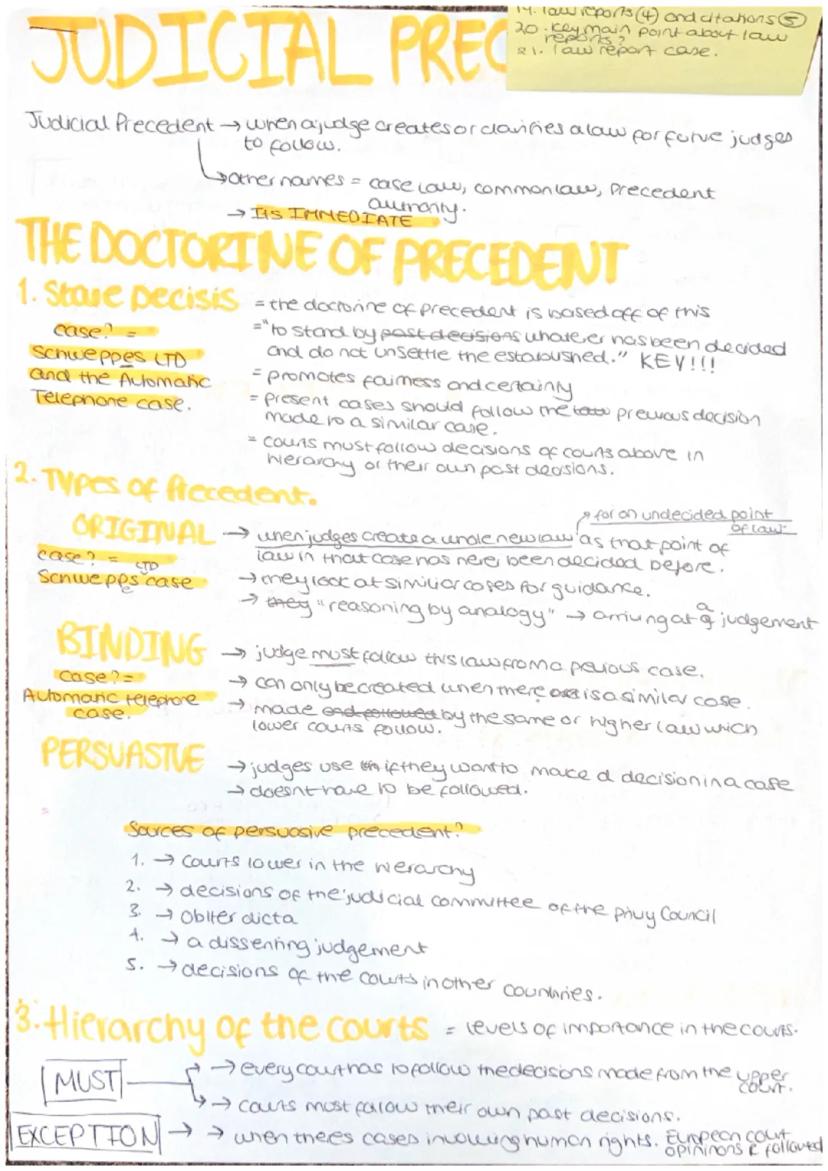 JUDICIAL PREC
19. law reports (4) and citations (5)
20. key main point about law
reports?
21. law report case.
Judicial Precedent → when a judge creates or clarifies a law for future judges
to follow.
→ other names = case law, common law, Precedent
authority.
→ ITS IMMEDIATE
THE DOCTORINE OF PRECEDENT
1. Stare Decisis
case? =
Schweppes LTD
and the Automatic
Telephone case.
= the doctorine of precedent is based off of this
= "to stand by past decisions whatever has been decided
and do not unsettle the established." KEY!!!
= promotes fairness and certainty
= present cases should follow the previous decision
made to a similar case.
= courts must follow decisions of courts above in
hierarchy or their own past decisions.
2. Types of Precedent.
ORIGINAL
case? =
LTD
Schweppes case
→ when judges create a whole new law as that point of
for an undecided point
of law.
law in that case has never been decided before.
→ they look at similiar cases for guidance.
→ they "reasoning by analogy" → arriving at a judgement
BINDING
case? =
Automatic telephone
case.
→ judge must follow this law from a pevious case.
→ can only be created when there is a similar case.
→ made and followed by the same or higher law which
lower courts follow.
PERSUASIVE
→ judges use if they want to make a decision in a case
→ doesnt have to be followed.
Sources of persuasive precedent?
1. → Courts lower in the hierarchy
2. → decisions of the judicial committee of the privy Council
3. → Obiter dicta
4. → a dissenting judgement
5. → decisions of the courts in other countries.
3. Hierarchy of the courts = levels of importance in the courts.
MUST
→ every court has to follow the decisions made from the upper
court.
→ courts must follow their own past decisions.
EXCEPTION → → when theres cases involving human rights. European court
opininons r followed